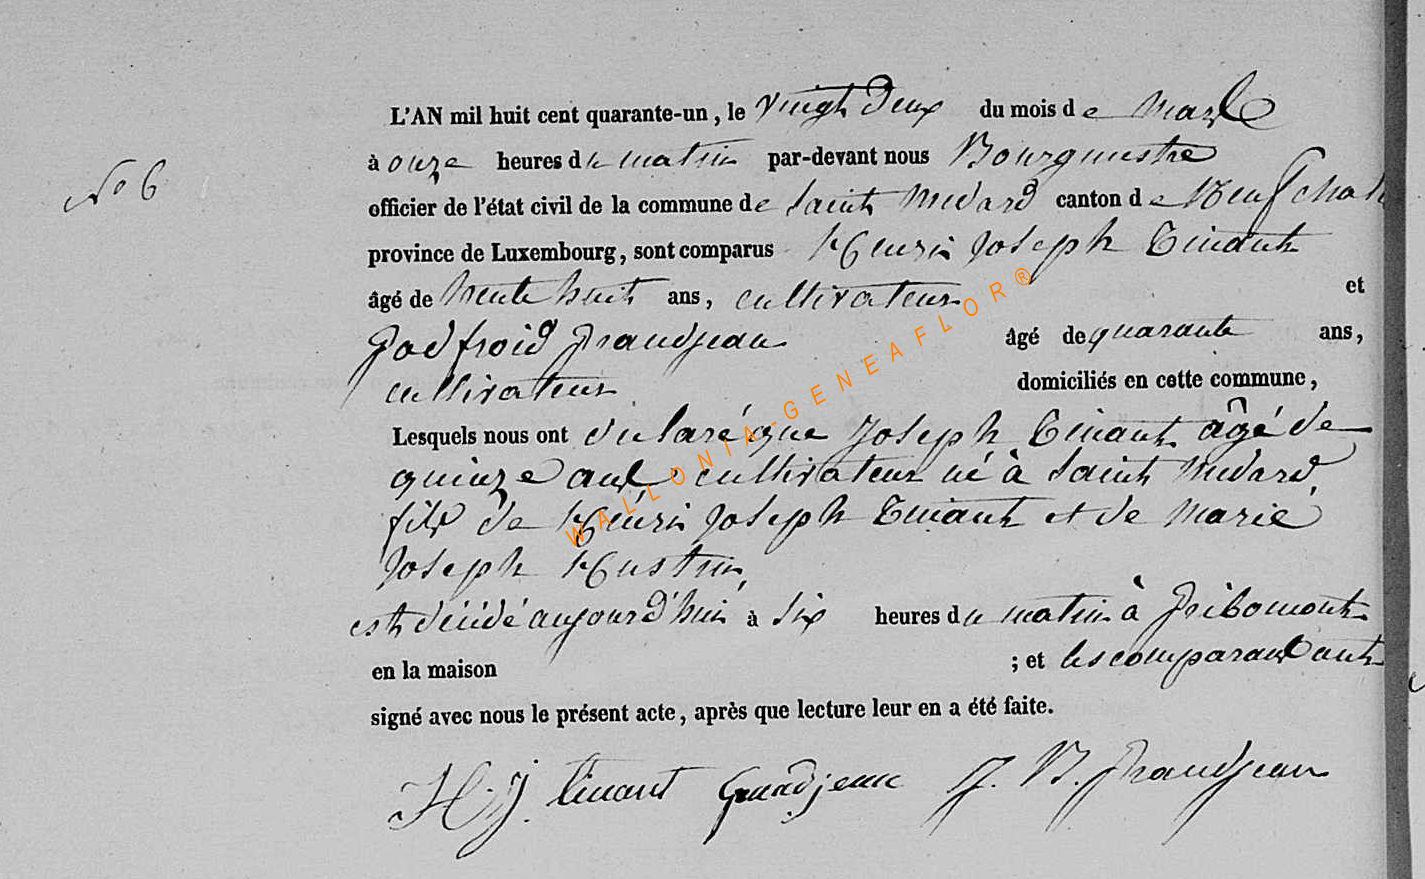 L'AN mil huit cent quarante-un, le vingt deux du mois de mars
No 6
à onze heures du matin par-devant nous Bourgmestre
officier de l'état civil de la commune de Saint Médard canton de Neufchat
province de Luxembourg, sont comparus Henri Joseph Tinant
âgé de trente huit ans, cultivateur et
Godfroid Grandjean âgé de quarante ans,
cultivateur domiciliés en cette commune,
Lesquels nous ont déclaré que Joseph Tinant âgé de
quinze ans cultivateur né à Saint Médard,
fils de Henri Joseph Tinant et de Marie
Joseph Hustin,
est décédé aujourd'hui à six heures du matin à Gribomont
en la maison ; et les comparants ont
signé avec nous le présent acte, après que lecture leur en a été faite.
H. J. Tinant Grandjean J. B. Grandjean
WALLONIA-GENEAFLOR®